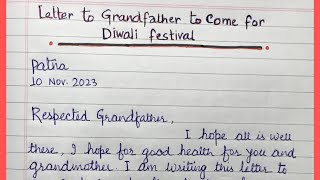 Letter to Grandfather to Come for
Diwali festival
Patna
10 Nov. 2023
Respected Grandfather,
I hope all is well
there, I hope for good health for you and
grandmother. I am writing this letter to